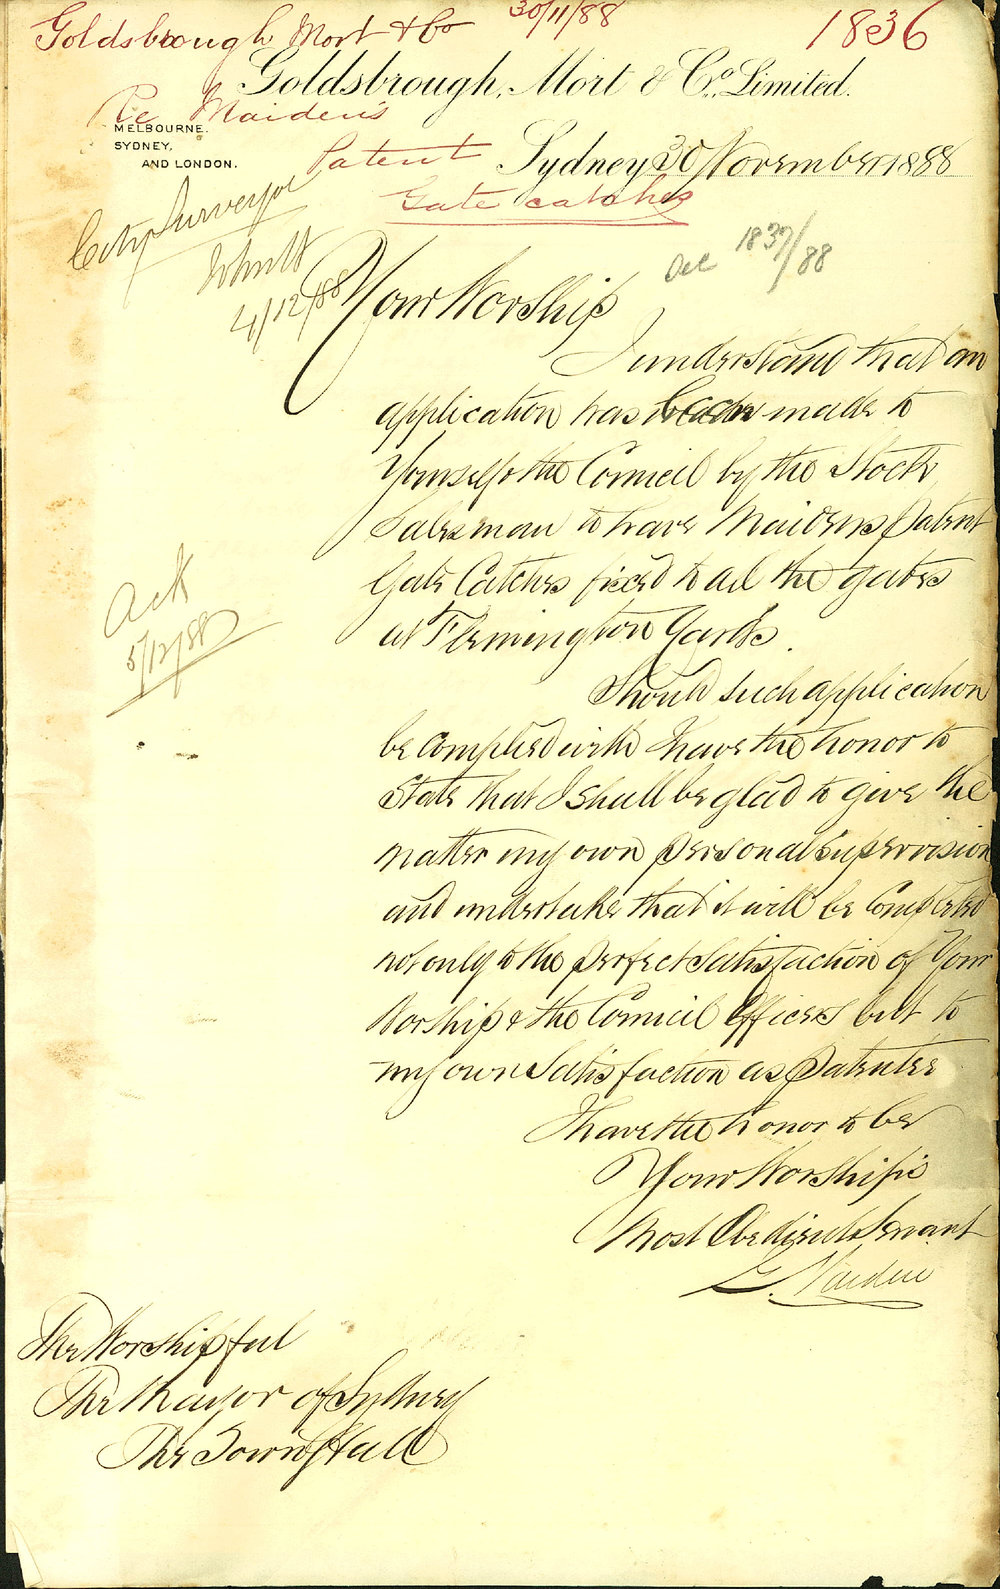 Goldsbrough Mort & Co 30/11/88 1836
Goldsbrough, Mort & Co. Limited.
Re Maiden's
MELBOURNE.
SYDNEY,
AND LONDON.
Patent Sydney 30 November 1888
Gate catches
City Surveyor
4/12/88
1837/88
Your Worship
I understand that an
application has been made to
Yourself & the Council by the Stock
Salesman to have Maidens Patent
Gate Catches fixed to all the gates
at Flemington Yards.
Should such application
be complied with I have the honor to
State that I shall be glad to give the
matter my own personal supervision
and undertake that it will be completed
not only to the perfect satisfaction of Your
Worship & the Council Officers but to
my own Satisfaction as Patentee
I have the honor to be
Your Worship's
Most Obedient Servant
G. Maiden
Ack
5/12/88
The Worshipful
The Mayor of Sydney
The Town Hall